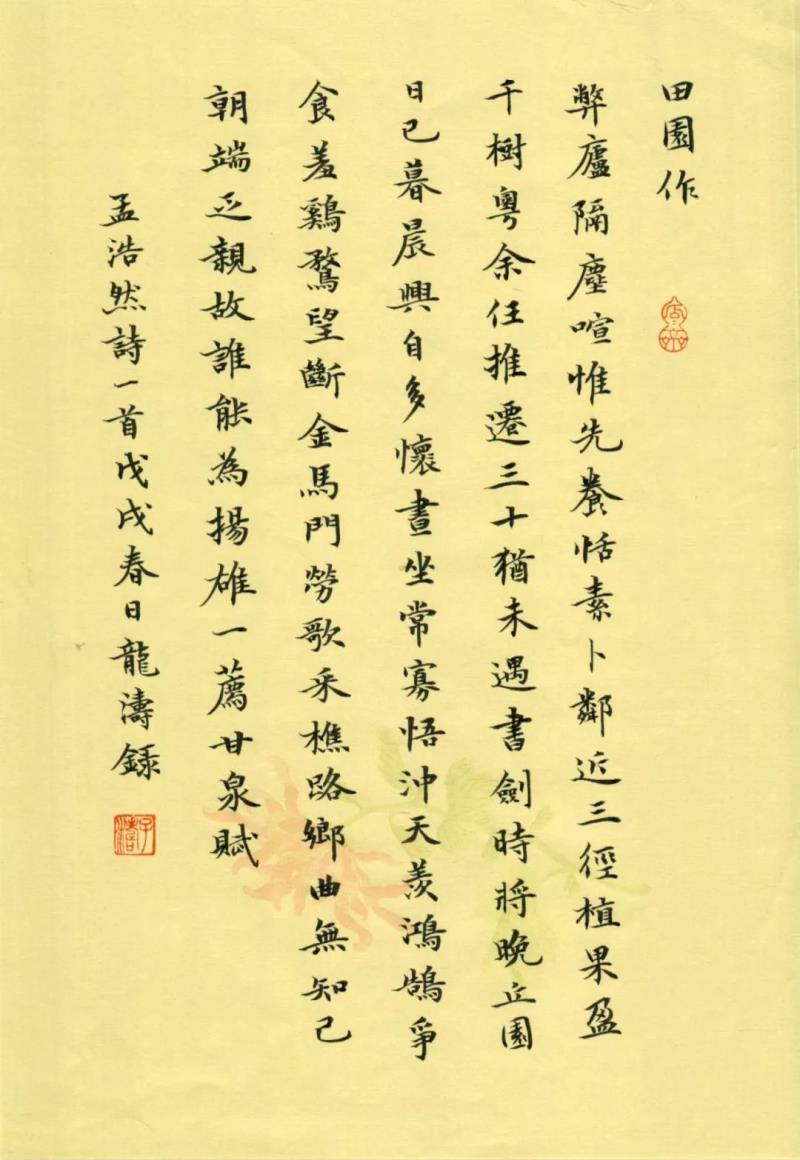 田園作
弊廬隔塵喧惟先養恬素卜鄰近三徑植果盈
千樹粵余任推遷三十猶未遇書劍時將晚丘園
日已暮晨興自多懷晝坐常寡悟沖天羨鴻鵠爭
食羞鷄鶩望斷金馬門勞歌采樵路鄉曲無知己
朝端乏親故誰能為揚雄一薦甘泉賦
孟浩然詩一首戊戌春日龍濤錄